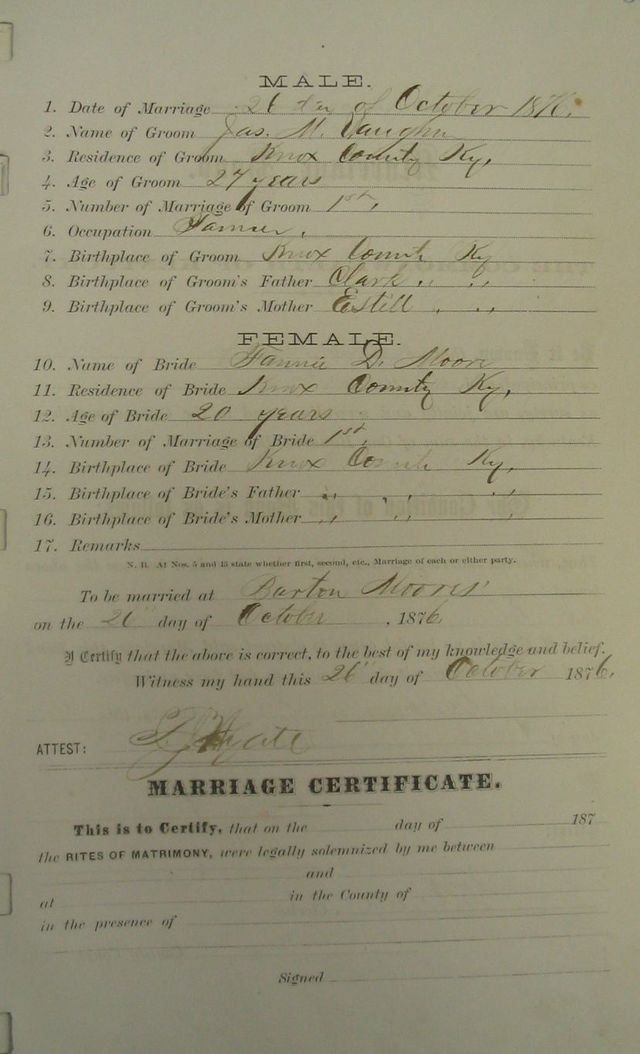 MALE.
1. Date of Marriage 26 day of October 1876.
2. Name of Groom Jas. M. Vaughn
3. Residence of Groom Knox County Ky,
4. Age of Groom 27 years
5. Number of Marriage of Groom 1st,
6. Occupation Farmer,
7. Birthplace of Groom Knox County Ky
8. Birthplace of Groom's Father Clark " "
9. Birthplace of Groom's Mother Estill " "
FEMALE.
10. Name of Bride Fannie D. Moore
11. Residence of Bride Knox County Ky,
12. Age of Bride 20 years
13. Number of Marriage of Bride 1st,
14. Birthplace of Bride Knox County Ky,
15. Birthplace of Bride's Father " " "
16. Birthplace of Bride's Mother " " "
17. Remarks
N. B. At Nos. 5 and 13 state whether first, second, etc., Marriage of each or either party.
To be married at Barton Moores
on the 26" day of October, 1876
I Certify that the above is correct, to the best of my knowledge and belief.
Witness my hand this 26" day of October 1876,
ATTEST:
MARRIAGE CERTIFICATE.
This is to Certify, that on the day of 187
the RITES OF MATRIMONY, were legally solemnized by me between
and
at in the County of
in the presence of
Signed